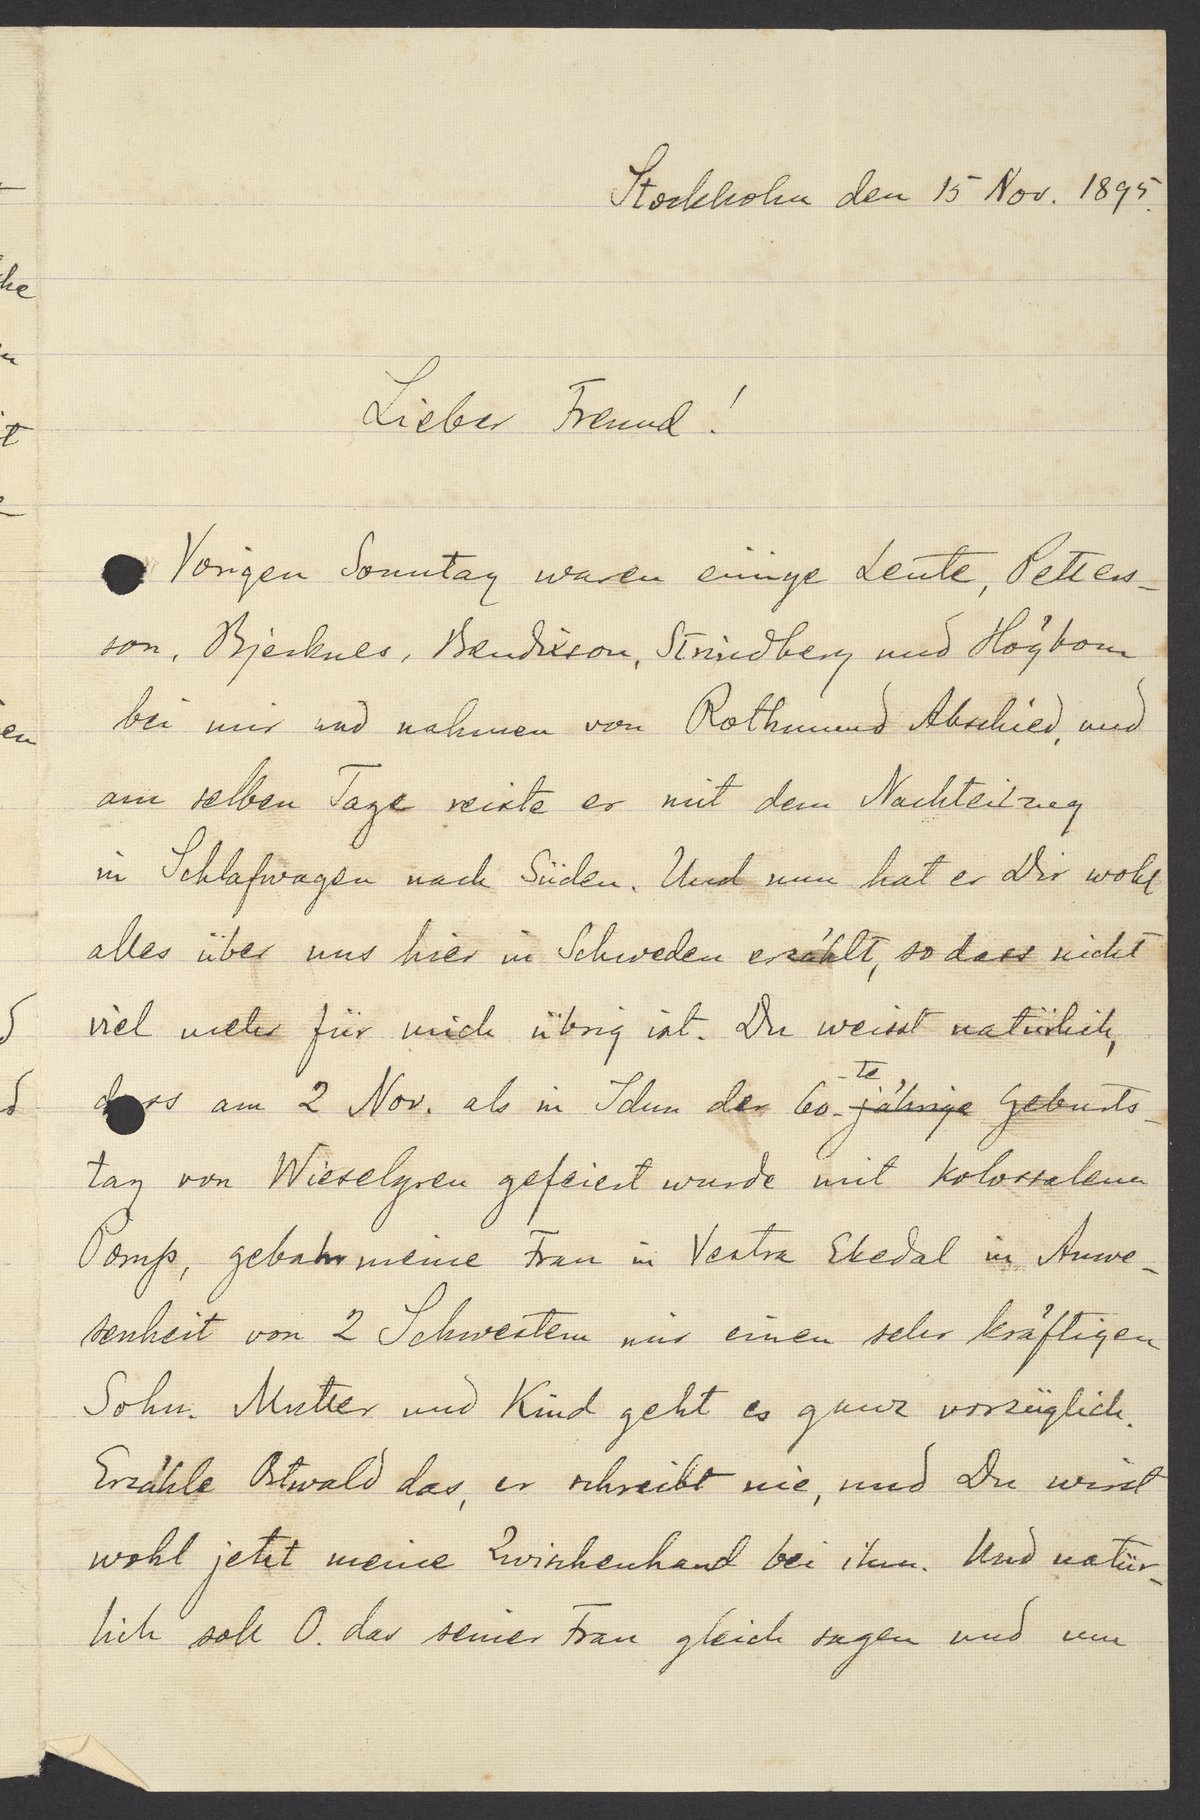 Stockholm den 15 Nov. 1895.
Lieber Freund!
Vorigen Sonntag waren einige Leute, Petters-
son, Bjerknes, Bendixson, Strindberg und Högbom
bei mir und nahmen von Rothmund Abschied, und
am selben Tage reiste er mit dem Nachteilzug
in Schlafwagen nach Süden. Und nun hat er Dir wohl
alles über uns hier in Schweden erzählt, so dass nicht
viel mehr für mich übrig ist. Du weisst natürlich,
dass am 2 Nov. als in Idun der 60-te jährige Geburts-
tag von Wieselgren gefeiert wurde mit kolossalem
Pomp, gebahr meine Frau in Vestra Ekedal in Anwe-
senheit von 2 Schwestern mir einen sehr kräftigen
Sohn. Mutter und Kind geht es ganz vorzüglich.
Erzähle Ostwald das, er schreibt nie, und Du wirst
wohl jetzt meine Zwischenhand bei ihm. Und natür-
lich soll O. das seiner Frau gleich sagen und um
he
t
en